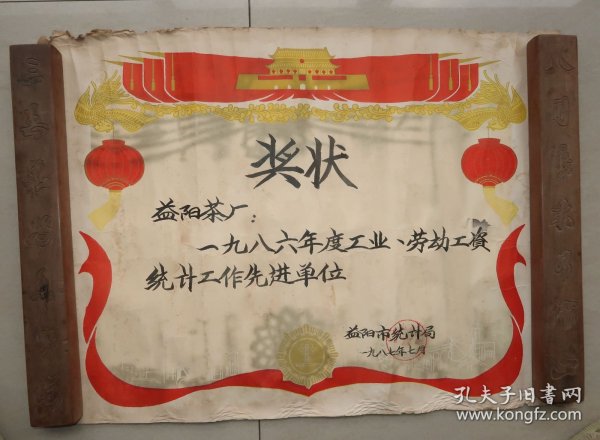 奖状
益阳茶厂：
一九八六年度工业、劳动工資
统计工作先进单位
益阳市统计局
一九八七年七月
孔夫子旧书网
www.kongfz.com